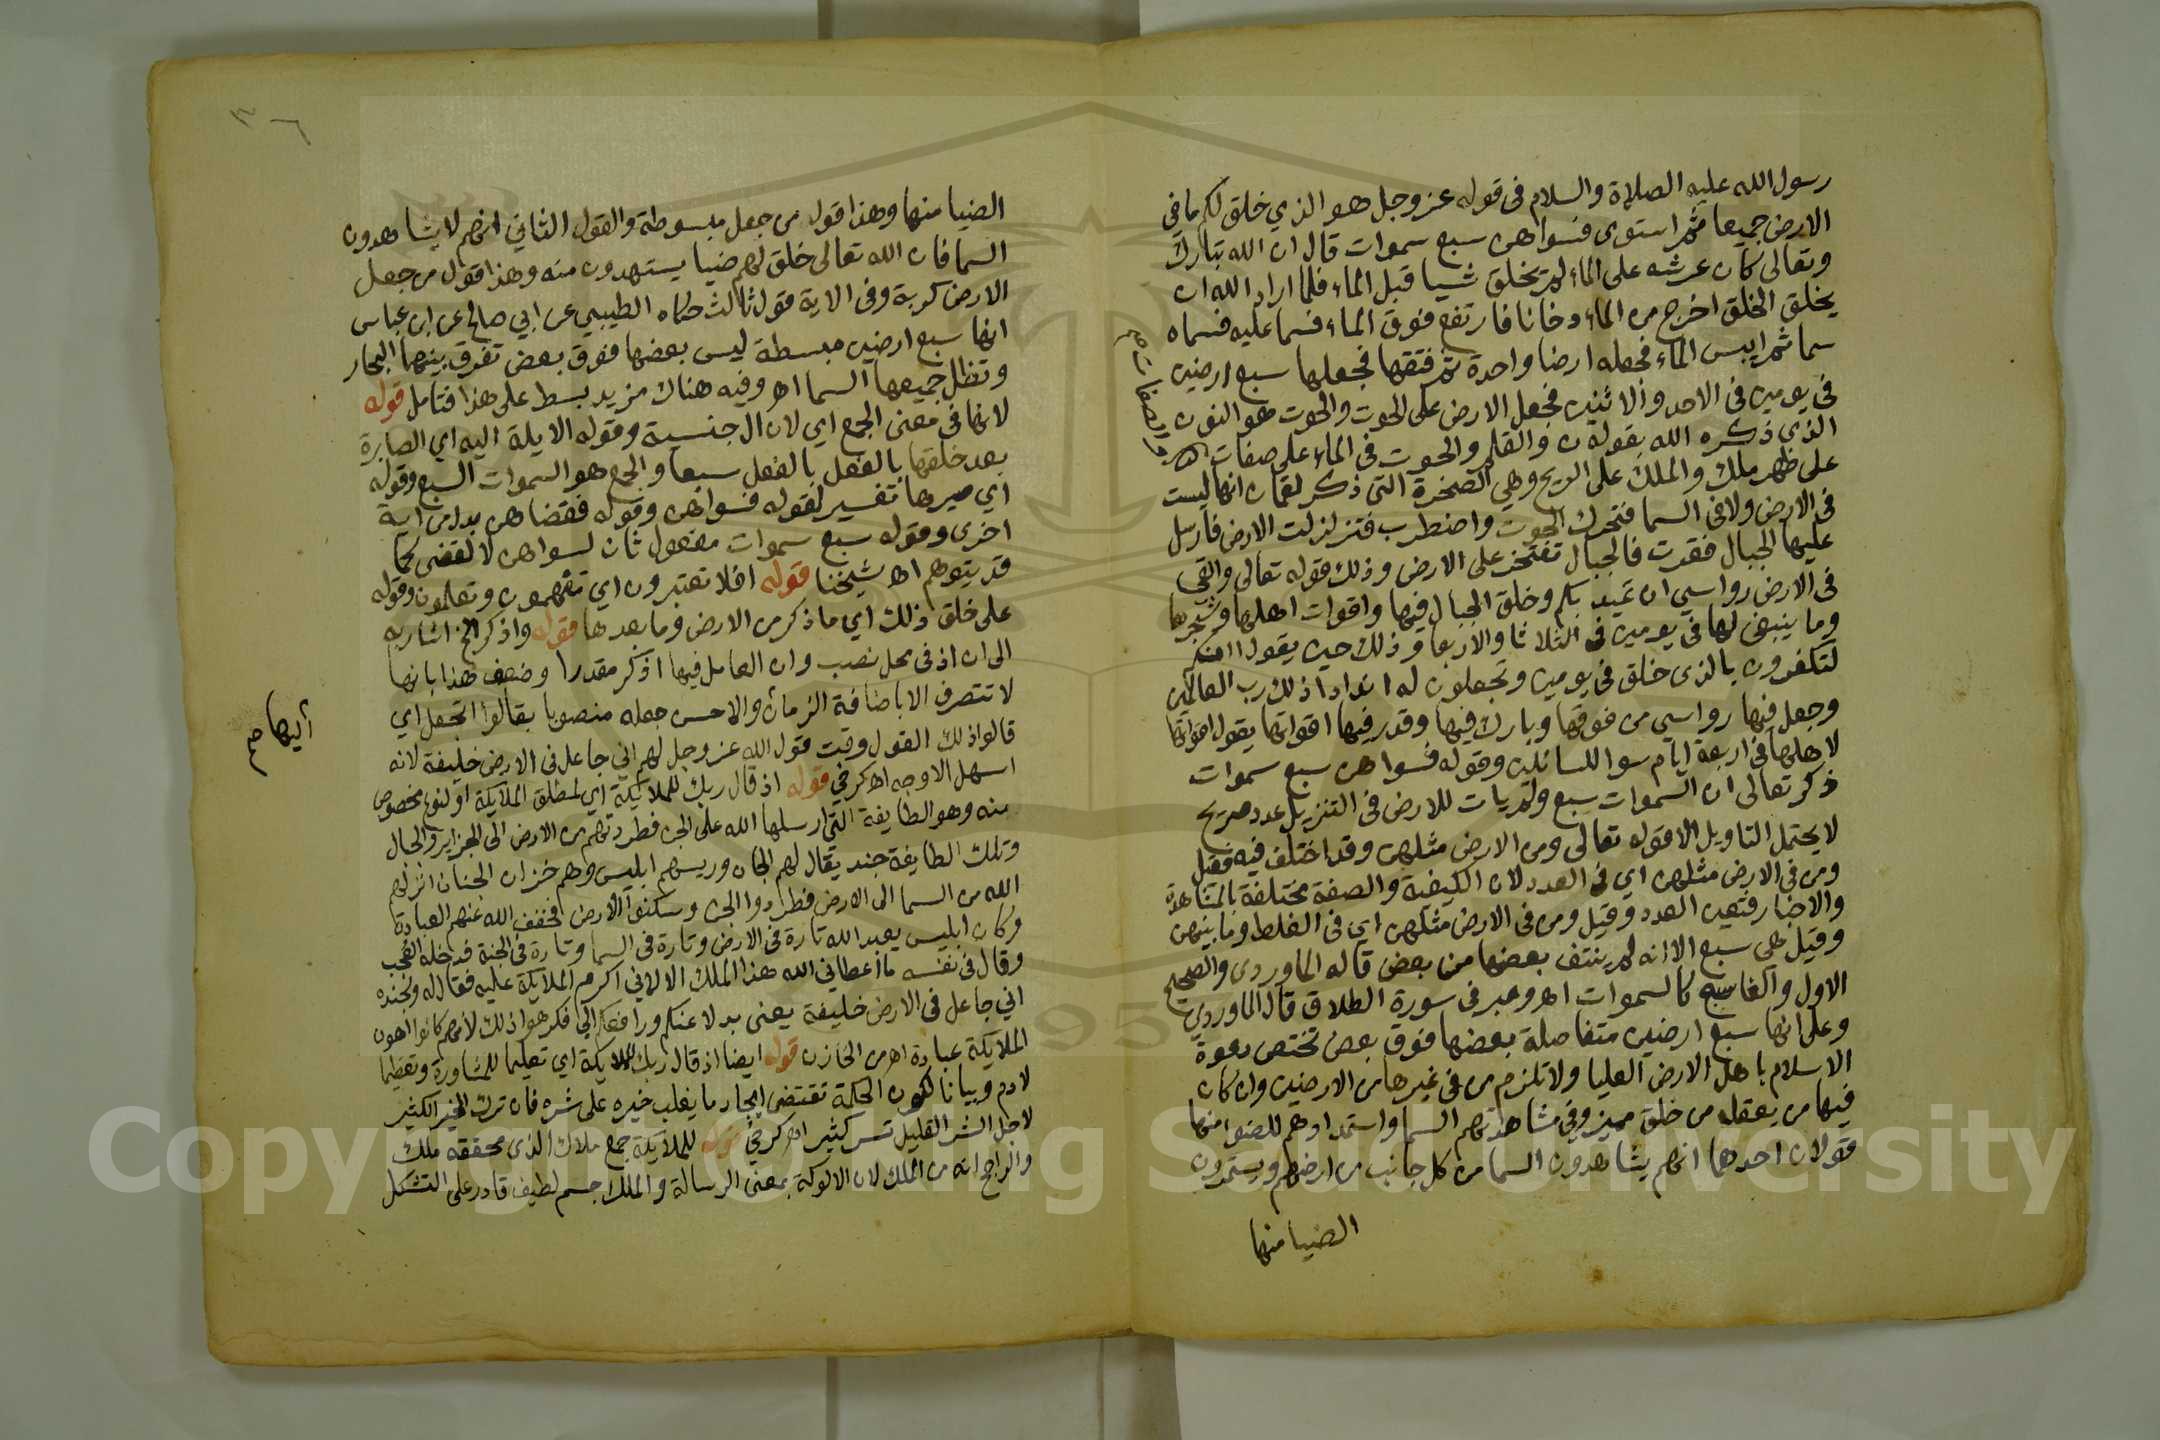 رسول الله عليه الصلاة والسلام فى قوله عز وجل هو الذي خلق لكم ما في
الارض جميعا ثم استوى فسواهن سبع سموات قال ان الله تبارك
وتعالى كان عرشه على الماء لم يخلق شيا قبل الماء فلما اراد الله ان
يخلق الخلق اخرج من الماء دخانا فارتفع فوق الماء فسما عليه فسماه
سما ثم ايبس الماء فجعله ارضا واحدة ثم فتقها فجعلها سبع ارضين
فى يومين فى الاحد والاثنين فجعل الارض على الحوت والحوت هو النون
الذي ذكره الله بقوله ن والقلم والحوت فى الماء على صفات
والصفات صح
على ظهر ملك والملك على الريح وهي الصخرة التى ذكر لقمان انها ليست
فى الارض ولا فى السما فتحرك الحوت واضطرب فتزلزلت الارض فارسل
عليها الجبال فقرت فالجبال تفتخر على الارض وذلك قوله تعالى والقى
فى الارض رواسي ان تميد بكم وخلق الجبال فيها واقوات اهلها وشجرها
وما ينبغى لها فى يومين فى الثلاثا والاربعا وذلك حين يقول ائنكم
لتكفرون بالذى خلق فى يومين وتجعلون له اندادا ذلك رب العالمين
وجعل فيها رواسي من فوقها وبارك فيها وقدر فيها اقواتها يقول اقواتها
لاهلها فى اربعة ايام سوا للسائلين وقوله فسواهن سبع سموات
ذكر تعالى ان السموات سبع ولم يات للارض فى التنزيل عدد صريح
لا يحتمل التاويل الا قوله تعالى ومن الارض مثلهن وقد اختلف فيه فقيل
ومن فى الارض مثلهن اي فى العدد لان الكيفية والصفة مختلفة بالمشاهدة
والاخبار فتعين العدد وقيل ومن فى الارض مثلهن اي فى الغلظ وما بينهن
وقيل هى سبع الا انه لم ينتف بعضها من بعض قاله الماوردى والصحيح
الاول وانها سبع كالسموات اه وعبر فى سورة الطلاق قال الماوردي
وعلى انها سبع ارضين متفاصلة بعضها فوق بعض تختص دعوة
الاسلام باهل الارض العليا ولا تلزم من فى غيرها من الارضين وان كان
فيها من يعقل من خلق مميز وفى مشاهدتهم السما واستمدادهم للضوا منها
قولان احدهما انهم يشاهدون السما من كل جانب من ارضهم ويستمدون
الضيا منها
الضيا منها وهذا قول من جعل مبسوطة والقول الثاني انهم لا يشاهدون
السما فان الله تعالى خلق لهم ضيا يستهدون منه وهذا قول من جعل
الارض كرية وفى الاية قول ثالث حكاه الطيبي عن ابي صالح عن ابن عباس
انها سبع ارضين مبسطة ليس بعضها فوق بعض تفرق بينهما البحار
وتظل جميعها السما اه وفيه هناك مزيد بسط على هذا فتامل قوله
لانها فى معنى الجمع اي لان ال جنسية وقوله الايلة اليه اي الصايرة
بعد خلقها بالفعل بالفعل سبعا والجمع هو السموات السبع وقوله
اليها صح
اي صيرها تفسير لقوله فسواهن وقوله فقضاهن بدل من اية
اخرى وقوله سبع سموات مفعول ثان لسواهن لا لقضى كما
قد يتوهم اه شيخنا قوله افلا تعتبرون اي تفهمون وتعلمون وقوله
على خلق ذلك اي ما ذكر من الارض وما بعدها قوله واذكر الخ اشار به
الى ان اذ فى محل نصب وان العامل فيها اذكر مقدرا وضعف هذا بانها
لا تتصرف الا باضافة الزمان والاحسن جعله منصوبا بقالوا اتجعل اي
قالوا ذلك القول وقت قول الله عز وجل لهم اني جاعل فى الارض خليفة لانه
اسهل الاوجه اه كرخي قوله اذ قال ربك للملايكة اي لمطلق الملايكة او لنوع مخصوص
منه وهو الطايفة التى ارسلها الله على الجن فطردتهم من الارض الى الجزاير والجبال
وتلك الطايفة جند يقال لهم الجان وريسهم ابليس وهم خزان الجنان انزلهم
الله من السما الى الارض فطردوا الجن وسكنوا الارض فخفف الله عنهم العبادة
وكان ابليس يعبد الله تارة فى الارض وتارة فى السما وتارة فى الجنة فدخله العجب
وقال فى نفسه ما اعطاني الله هذا الملك الا لاني اكرم الملايكة عليه فقال له ولجنده
اني جاعل فى الارض خليفة يعنى بدلا عنكم ورافعكم الي فكرهوا ذلك لانهم كانوا اهون
الملايكة عبادة اه من الخازن قوله ايضا اذ قال ربك للملايكة اي تعليما للمشاورة وتعظيما
لادم وبيانا لكون الحكمة تقتضى ايجاد ما يغلب خيره على شره فان ترك الخير الكثير
لاجل الشر القليل شر كثير اه كرخي قوله للملايكة جمع ملاك الذى محققه ملك
والراجح انه من الملك لان الالوكة بمعنى الرسالة والملك جسم لطيف قادر على التشكل
Copyright © King Saud University